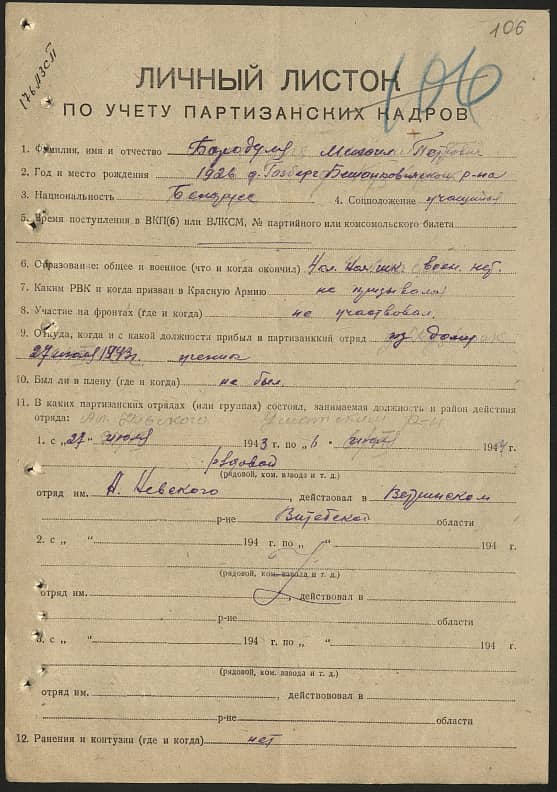 106
106
ЛИЧНЫЙ ЛИСТОК
ПО УЧЕТУ ПАРТИЗАНСКИХ КАДРОВ
1. Фамилия, имя и отчество Бородуля Михаил
2. Год и место рождения 1926 д. Бешанковичского р-на
3. Национальность Беларусс 4. Соцположение учащийся
5. Время поступления в ВКП(б) или ВЛКСМ, № партийного или комсомольского билета
6. Образование: общее и военное (что и когда окончил) воен. нет.
7. Каким РВК и когда призван в Красную Армию не призывался
8. Участие на фронтах (где и когда) не участвовал.
9. Откуда, когда и с какой должности прибыл в партизанкий отряд из дому
27 июля 1943г.
10. Был ли в плену (где и когда) не был.
11. В каких партизанских отрядах (или группах) состоял, занимаемая должность и район действия
отряда: Невского р-н
1. с „27“ июля 1943 г. по „ “ 1944 г.
рядовой
(рядовой, ком. взвода и т. д.)
отряд им. А. Невского, действовал в Ветринском
р-не Витебской области
2. с „ “ 194 г. по „ “ 194 г.
(рядовой, ком. взвода и т. д.)
отряд им. , действовал в
р-не области
3. с „ “ 194 г. по „ “ 194 г.
(рядовой, ком. взвода и т. д.)
отряд им. , действововал в
р-не области
12. Ранения и контузии (где и когда) нет